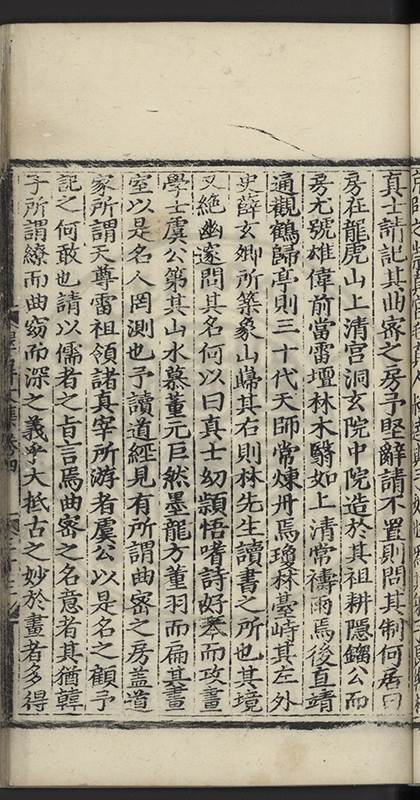 真士請記其曲密之房予堅辭請不置則問其制何居曰
房在龍虎山上清宮洞玄院中院造於其祖耕隱鏐公而
房尤號雄偉前當雷壇林木翳如上清常禱雨焉後直靖
通觀鶴歸亭則三十代天師常煉丹焉瓊林臺峙其左外
史薛玄卿所築象山歸其右則林先生讀書之所也其境
又絕幽邃問其名何以曰真士幼穎悟嗜詩好琴而攻畫
學士虞公第其山水慕董元巨然墨龍方董羽而扁其畫
室以是名人罔測也予讀道經見有所謂曲密之房蓋道
家所謂天尊雷祖領諸真宰所游者虞公以是名之顧予
記之何敢也請以儒者之言焉曲密之名意者其猶韓
子所謂繚而曲窈而深之義乎大柢古之妙於畫者多得